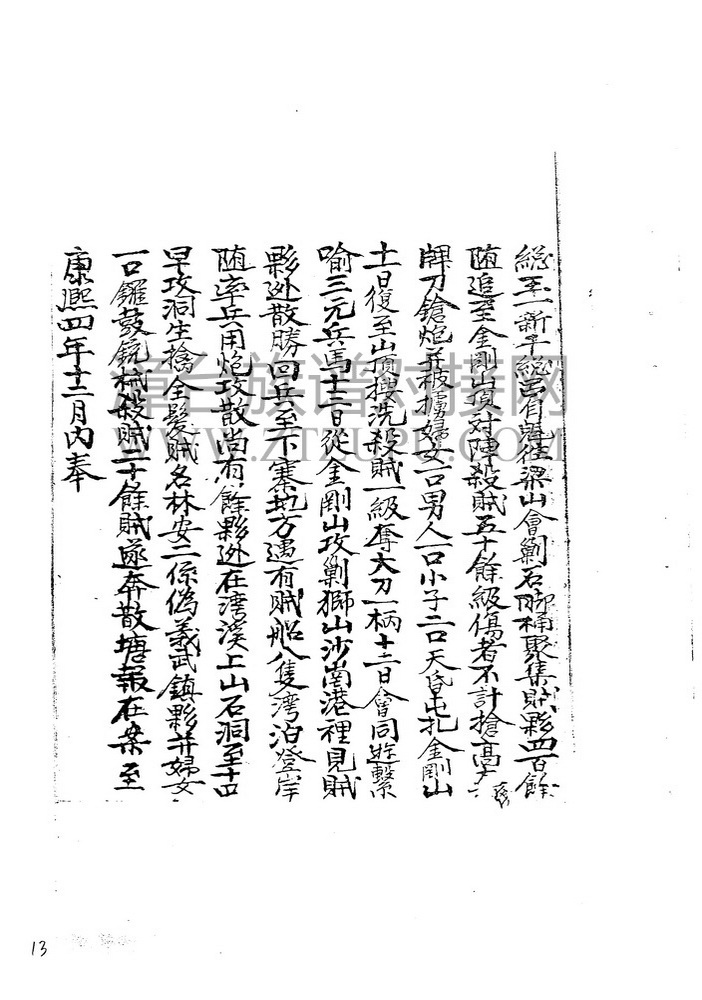 總王一新平總岳自
往梁山會剿石腳桶聚集賊夥四百餘
随追至金剛山頂对陣殺賊五十餘級傷者不計搶
牌刀鎗炮并被擄婦女一口男人一口小子二口天昏屯扎金剛山
十一日復至山頂搜洗殺賊一級奪大刀一柄十二日會同遊擊
喻三元兵馬十三日從金剛山攻剿獅山沙崙港裡見賊
夥迯散勝回兵至下寨地方遇有賊船八隻湾泊登岸
随率兵用炮攻散尚有餘夥迯在湾溪上山石洞至十四
早攻洞生擒全髮賊名林安二係偽義武鎮夥并婦女
一口鑼鼓銃械殺賊二十餘賊遂奔散塘報在案至
康熙四年十二月内奉
章台族谱对接网
WWW.ZTZUPU.COM
13